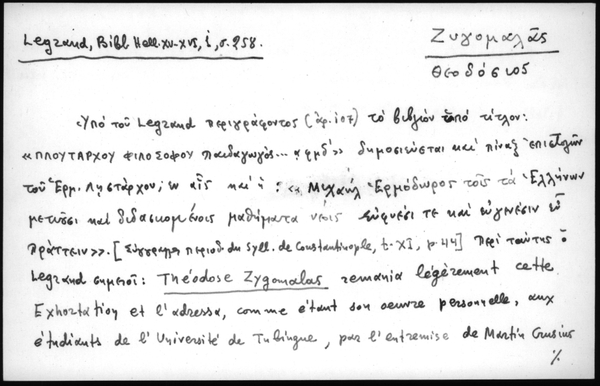 Legrand, Bibl Hell. XV-XVI, i, σ. 258.
Ζυγομαλᾶς
Θεοδόσιος
Ὑπό τοῦ Legrand περιγράφοντος (ἀρ. 107) τό βιβλίον ὑπό τίτλον:
«ΠΛΟΥΤΑΡΧΟΥ ΦΙΛΟΣΟΦΟΥ παιδαγωγός... ͵αφμδ'» δημοσιεύεται καί πίναξ ἐπιστολῶν
τοῦ Ἑρμ. Ληστάρχου, ἐν αἷς καί ἡ: «Μιχαήλ Ἑρμόδωρος τοῖς τά Ἑλλήνων
μετιοῦσι καί διδασκομένοις μαθήματα νέοις εὐφυέσι τε καί εὐγενέσιν εὖ
πράττειν». [Σύγγραμμα περιοδ. du Syll. de Constantinople, t. XI, p. 44] Περί ταύτης ὁ
Legrand σημειοῖ: Théodose Zygomalas remania légèrement cette
Exhortation et l'adressa, comme étant son oeuvre personnelle, aux
étudiants de l'Université de Tubingue, par l'entremise de Martin Crusius
./.